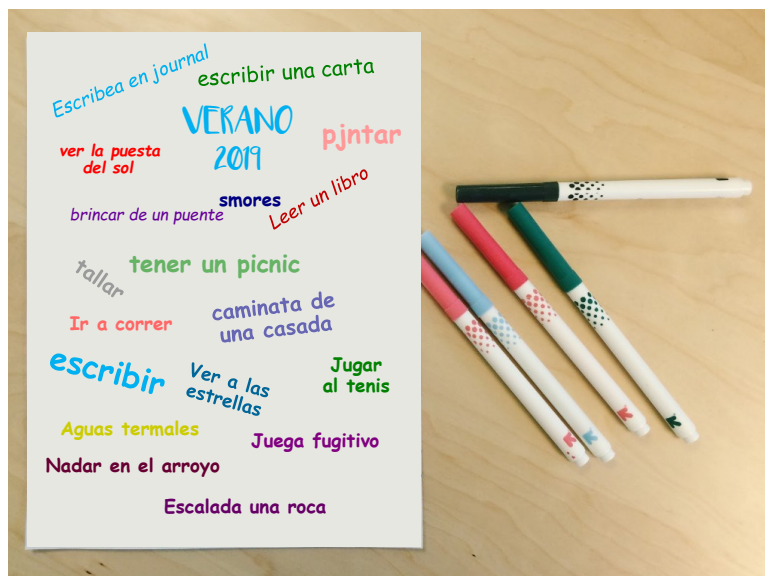 Escribea en journal
escribir una carta
VERANO
2019
pjntar
ver la puesta
del sol
smores
Leer un libro
brincar de un puente
tallar
tener un picnic
Ir a correr
caminata de
una casada
escribir
Ver a las
estrellas
Jugar
al tenis
Aguas termales
Juega fugitivo
Nadar en el arroyo
Escalada una roca